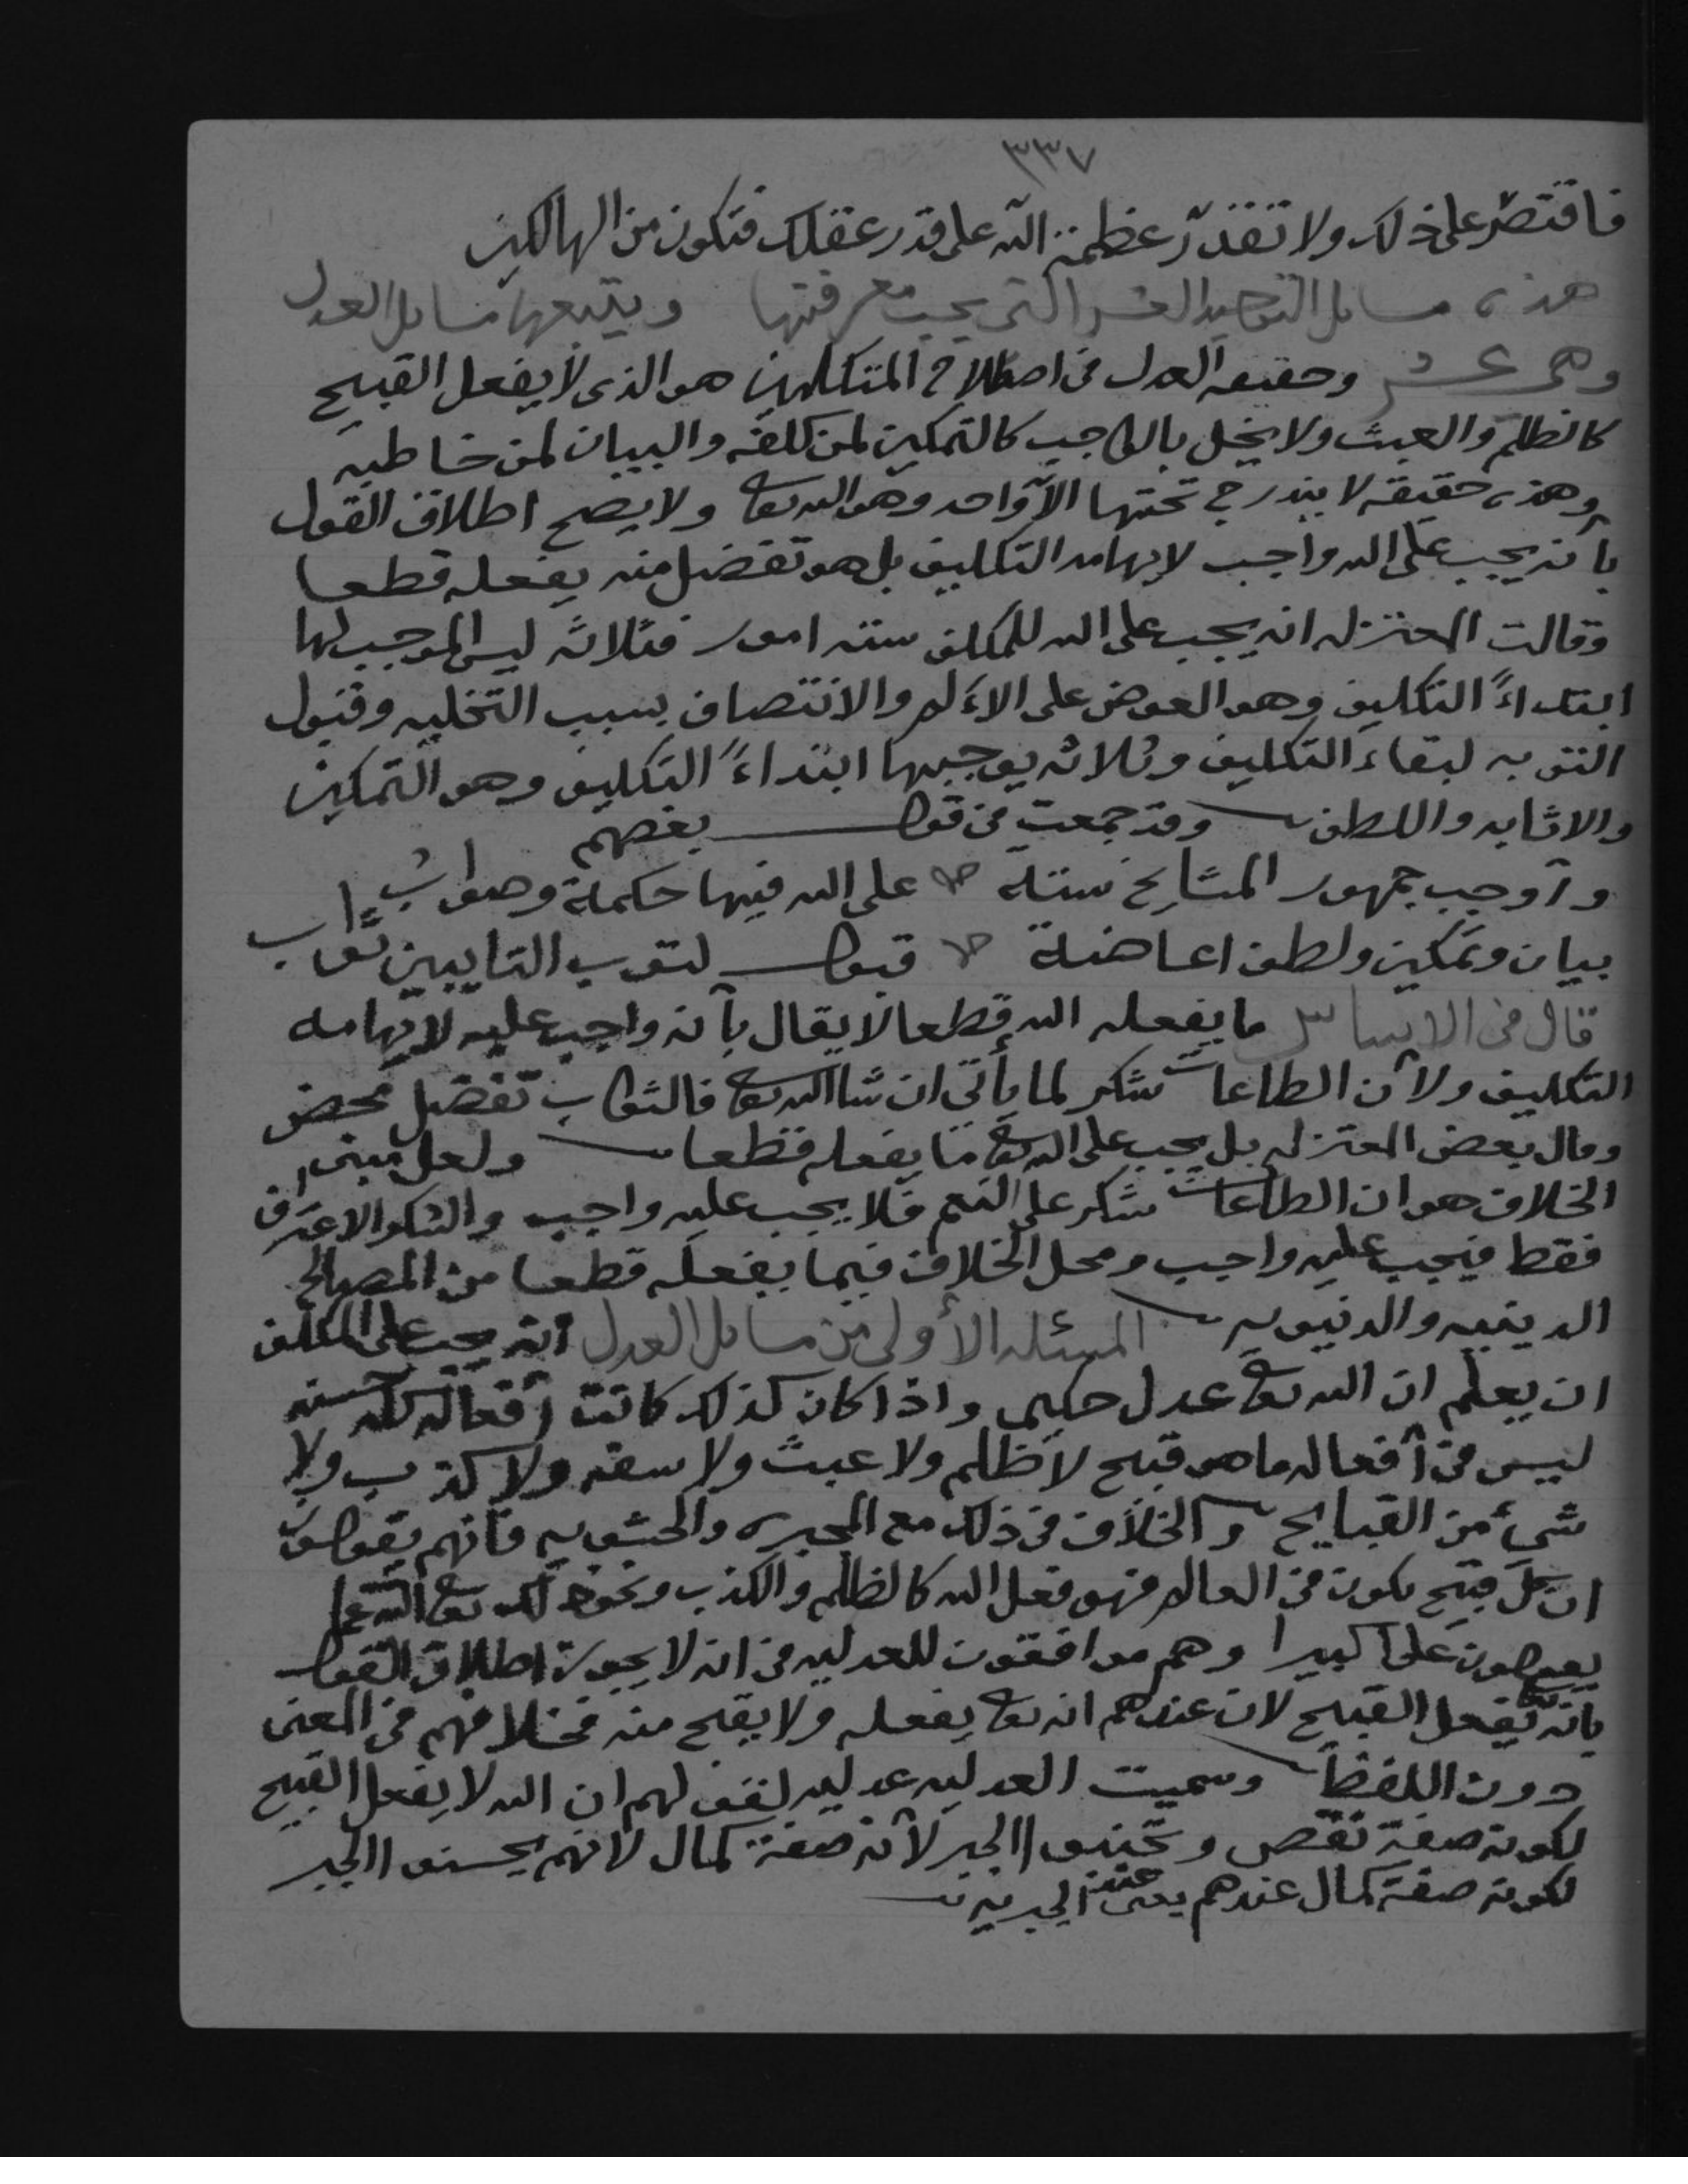 ٣٣٧
فاقتصر على ذلك ولا تقدّر عظمة الله على قدر عقلك فتكون من الهالكين
هذه مسايل التوحيد العشر التي يجب معرفتها ويتبعها مسايل العدل
وهي عشر وحقيقه العدل في اصطلاح المتكلمين هو الذي لا يفعل القبيح
كالظلم والعبث ولا يخل بالواجب كالتمكين لمن كلفه والبيان لمن خاطبه
وهذه حقيقه لا يندرج تحتها الا واحد وهو الله تعا ولا يصح اطلاق القول
بأنه يجب على الله واجب لإيهامه التكليف بل هو تفضل منه يفعله قطعا
وقالت المعتزله انه يجب على الله للمكلف سته امور فثلاثه ليس الموجب لها
ابتداءً التكليف وهو العوض على الآلام والانتصاف بسبب التخليه وقبول
التوبه لبقاء التكليف وثلاثه يوجبها ابتداءً التكليف وهو التمكين
والاثابه واللطف وقد جمعت في قول بعضهم
وأوجب جمهور المشايخ ستة على الله فيها حكمة وصواب
بيان وتمكين ولطف اعاضة قبول لتوب التايبين ثواب
قال في الاساس ما يفعله الله قطعا لا يقال بأنه واجب عليه لايهامه
التكليف ولأن الطاعات شكر لما يأتي ان شا الله تعا فالثواب تفضل محض
وقال بعض المعتزله بل يجب على الله تعا ما يفعله قطعا ولعل مبنى
الخلاف هو ان الطاعات شكر على النعم فلا يجب عليه واجب والشكر الاعتراف
فقط فيجب عليه واجب ومحل الخلاف فيما يفعله قطعا من المصالح
الدينيه والدنيويه المسئله الأولى من مسايل العدل انه يجب على المكلف
ان يعلم ان الله تعا عدل حكيم واذا كان كذلك كانت أفعاله كله حسنه
ليس في أفعاله ما هو قبيح لا ظلم ولا عبث ولا سفه ولا كذب ولا
شيء من القبايح والخلاف في ذلك مع المجبره والحشويه فانهم يقولون
ان كل قبيح يكون في العالم فهو فعل الله كالظلم والكذب ونحو ذلك تعا الله عما
يقولون علوا كبيرا وهم موافقون للعدليه في انه لا يجوز اطلاق القول
بأنه تعا يفعل القبيح لان عندهم انه تعا يفعله ولا يقبح منه فخلافهم في المعنى
دون اللفظ وسميت العدليه عدليه لقولهم ان الله لا يفعل القبيح
لكونه صفة نقص الجبر لأنه صفة كمال لانهم يحسنوا الجبر
لكونه صفة كمال عندهم يعني الجبريه